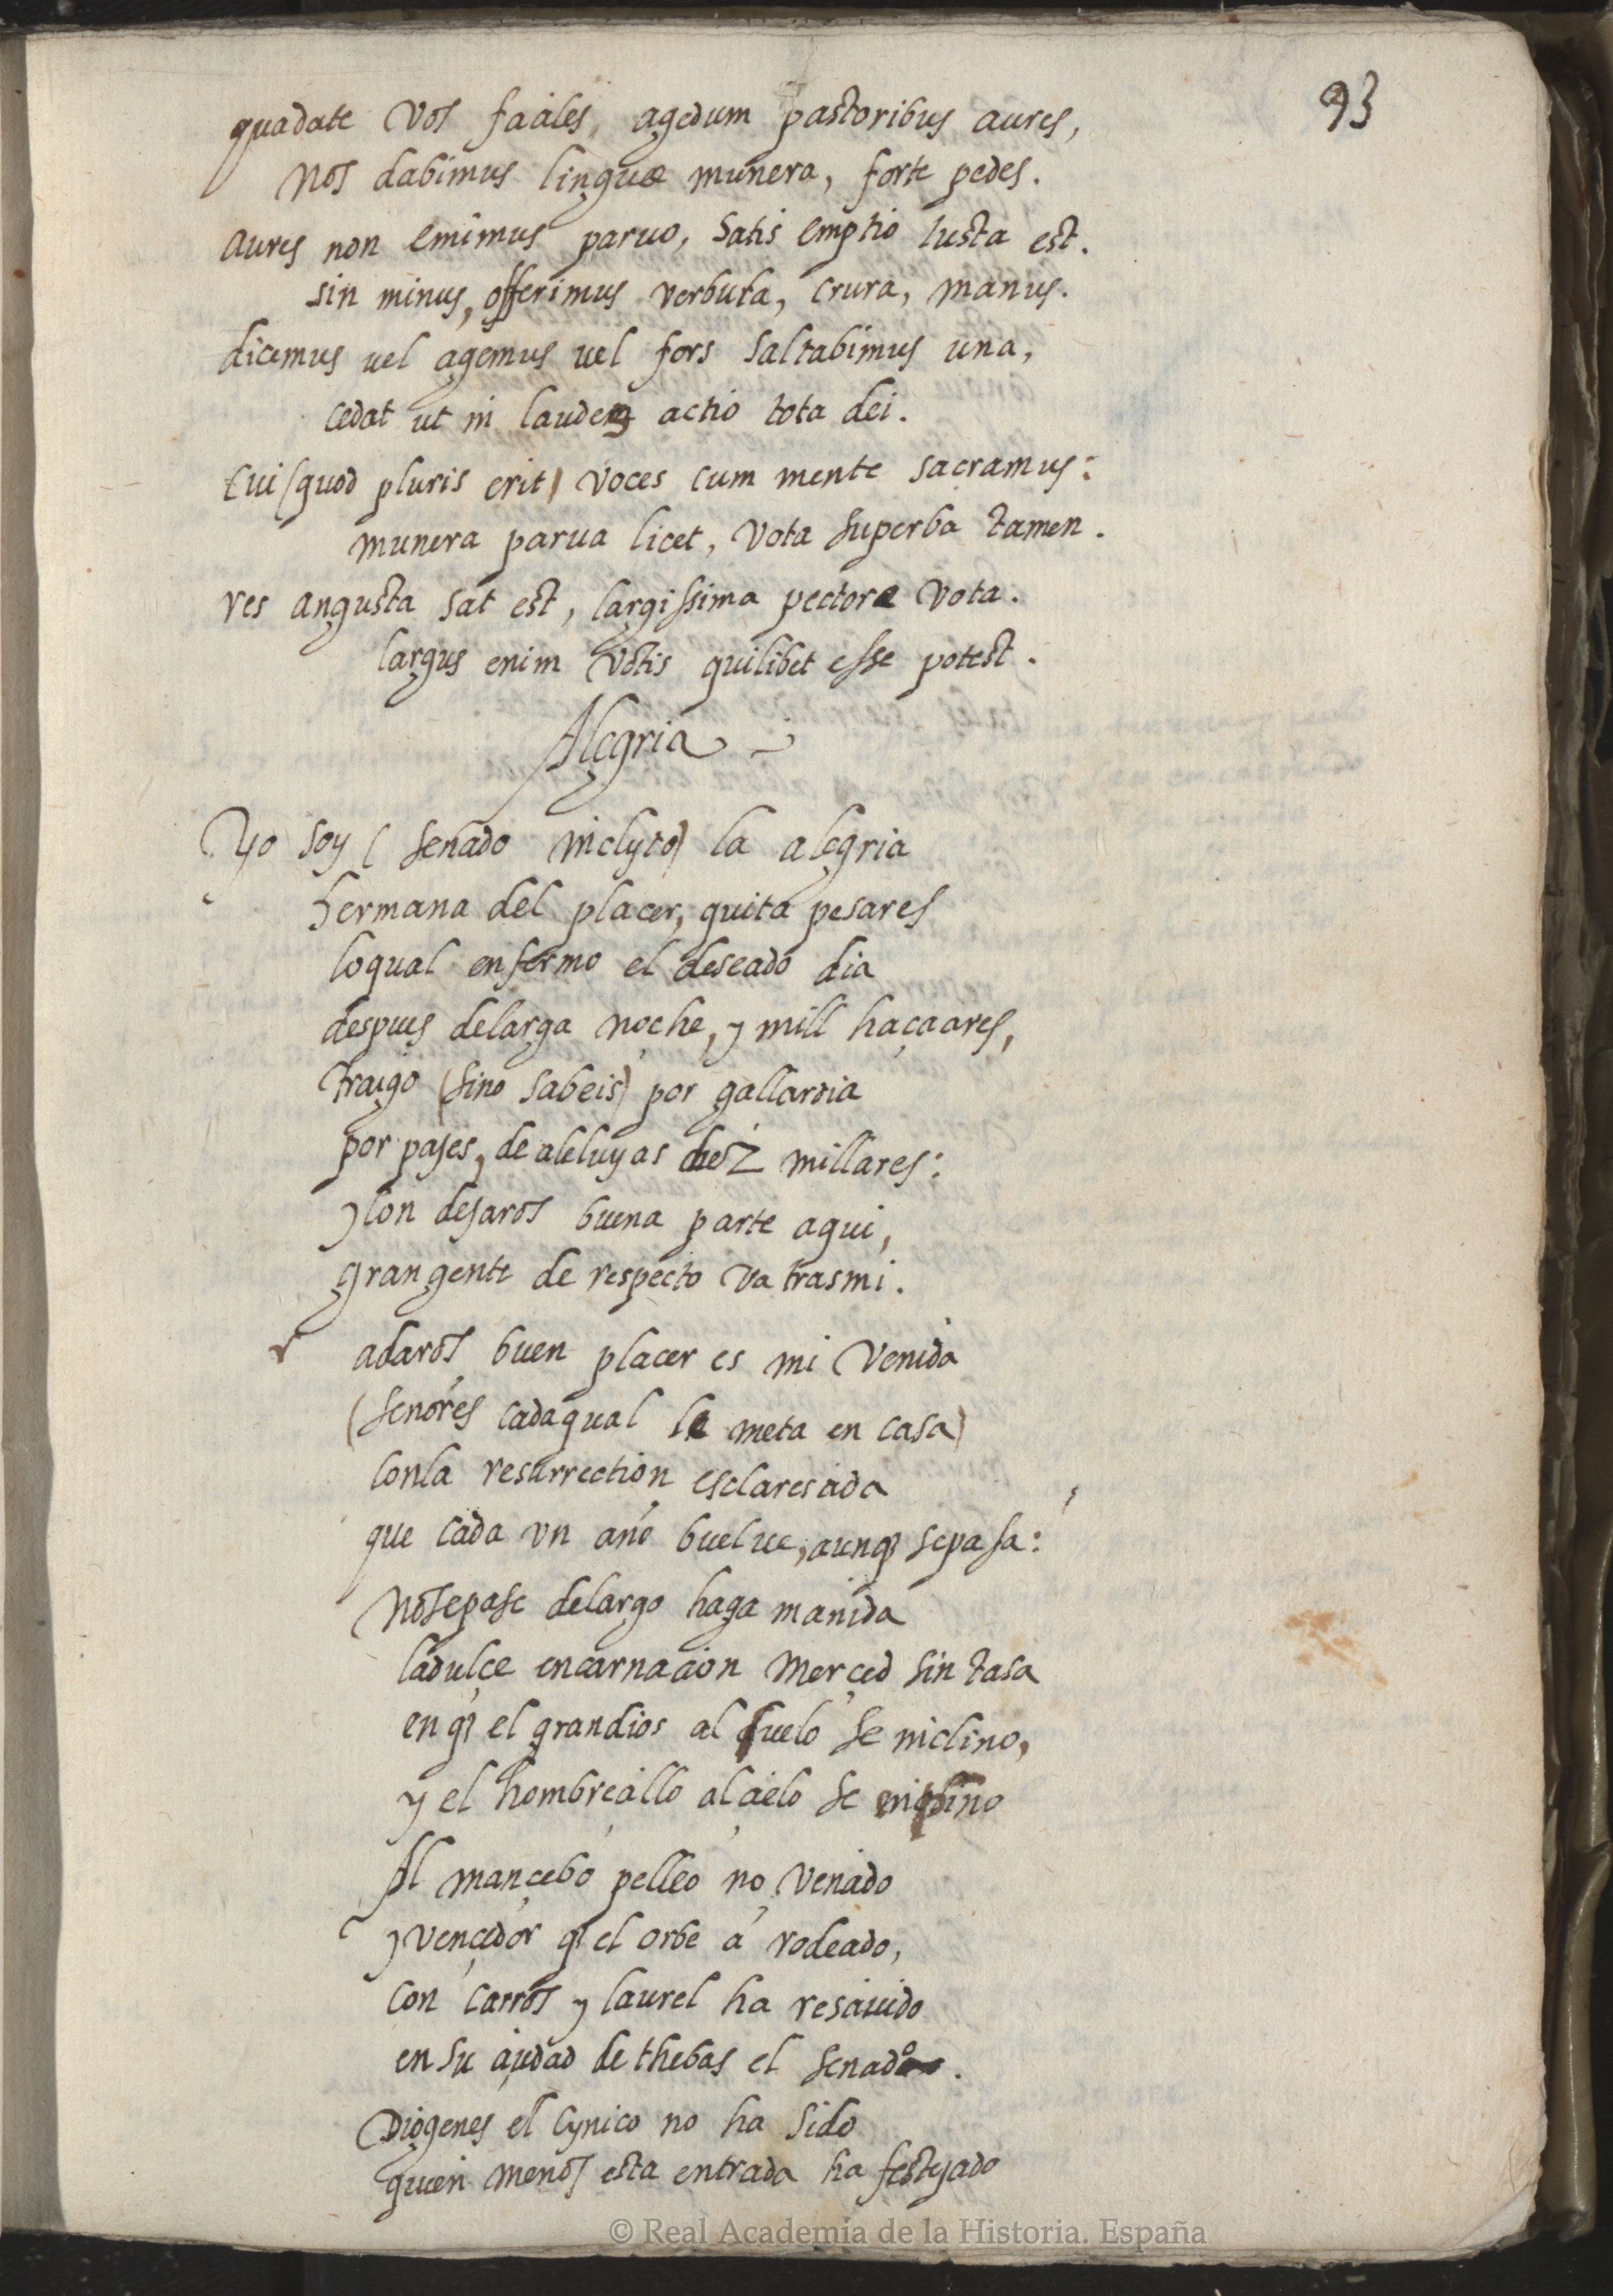 93
quadate vos faciles, agedum pastoribus aures,
nos dabimus linguæ munera, forte pedes.
aures non emimus paruo, satis emptio iusta est.
sin minus, offerimus verbula, crura, manus.
dicemus uel agemus uel fors saltabimus una,
cedat ut in laudem actio tota dei.
cui (quod pluris erit) voces cum mente sacramus:
munera parua licet, vota superba tamen.
res angusta sat est, largissima pectore vota.
largus enim votis quilibet esse potest.
Alegria
Yo soy (senado inclyto) la alegria
hermana del placer, quita pesares
loqual enfermo el deseado dia
despues delarga noche, y mill haçaares,
traigo (sino sabeis) por gallardia
por pajes, de aleluyas diez millares:
y con dejaros buena parte aqui,
gran gente de respecto va trasmi.
adaros buen placer es mi venida
(señores cadaqual le meta en casa)
conla resurrection esclarescida
que cada vn año buelue, aunq sepasa:
nosepase delargo haga manida
ladulçe encarnacion merçed sin tasa
en q el grandios al suelo se inclino,
y el hombreçillo alçielo se empino
Al mançebo pelleo no vençido
y vençedor q el orbe á rodeado,
con carros y laurel ha resciuido
en su çiudad de thebas el senado.
Diogenes el cynico no ha sido
quien menos esta entrada ha festejado
© Real Academia de la Historia. España